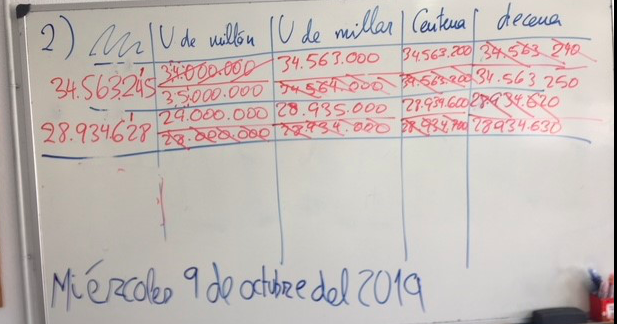 2) U de millón U de millar Centena decena
34.000.000 34.563.000 34.563.200 34.563.240
34.563.245 35.000.000 34.564.000 34.563.300 34.563 250
29.000.000 28.935.000 28.934.600 28.934.620
28.934.628 28.000.000 28.934.000 28.934.700 28934.630
Miércoles 9 de octubre del 2019